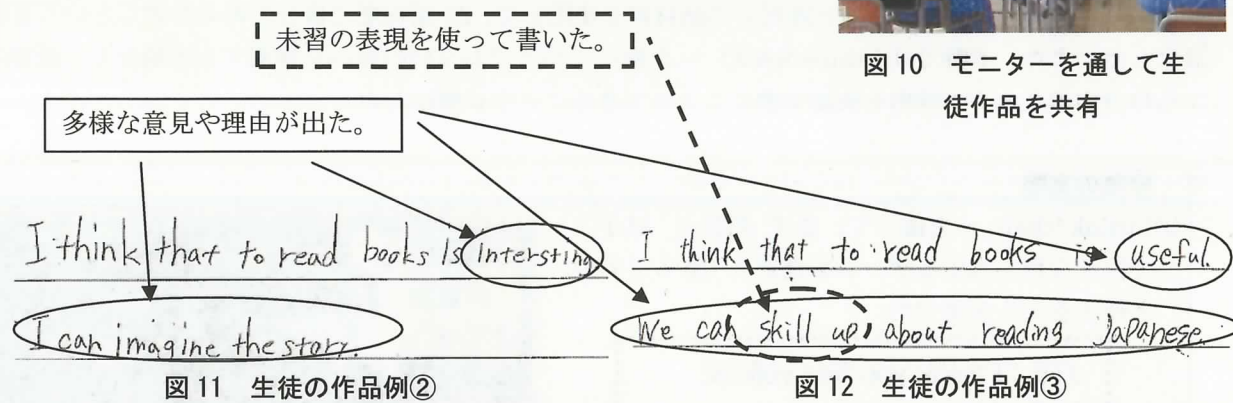 未習の表現を使って書いた。
図10 モニターを通して生
徒作品を共有
多様な意見や理由が出た。
I think that to read books is intersting
I can imagine the story.
図11 生徒の作品例②
I think that to read books is useful.
We can skill up about reading Japanese.
図12 生徒の作品例③